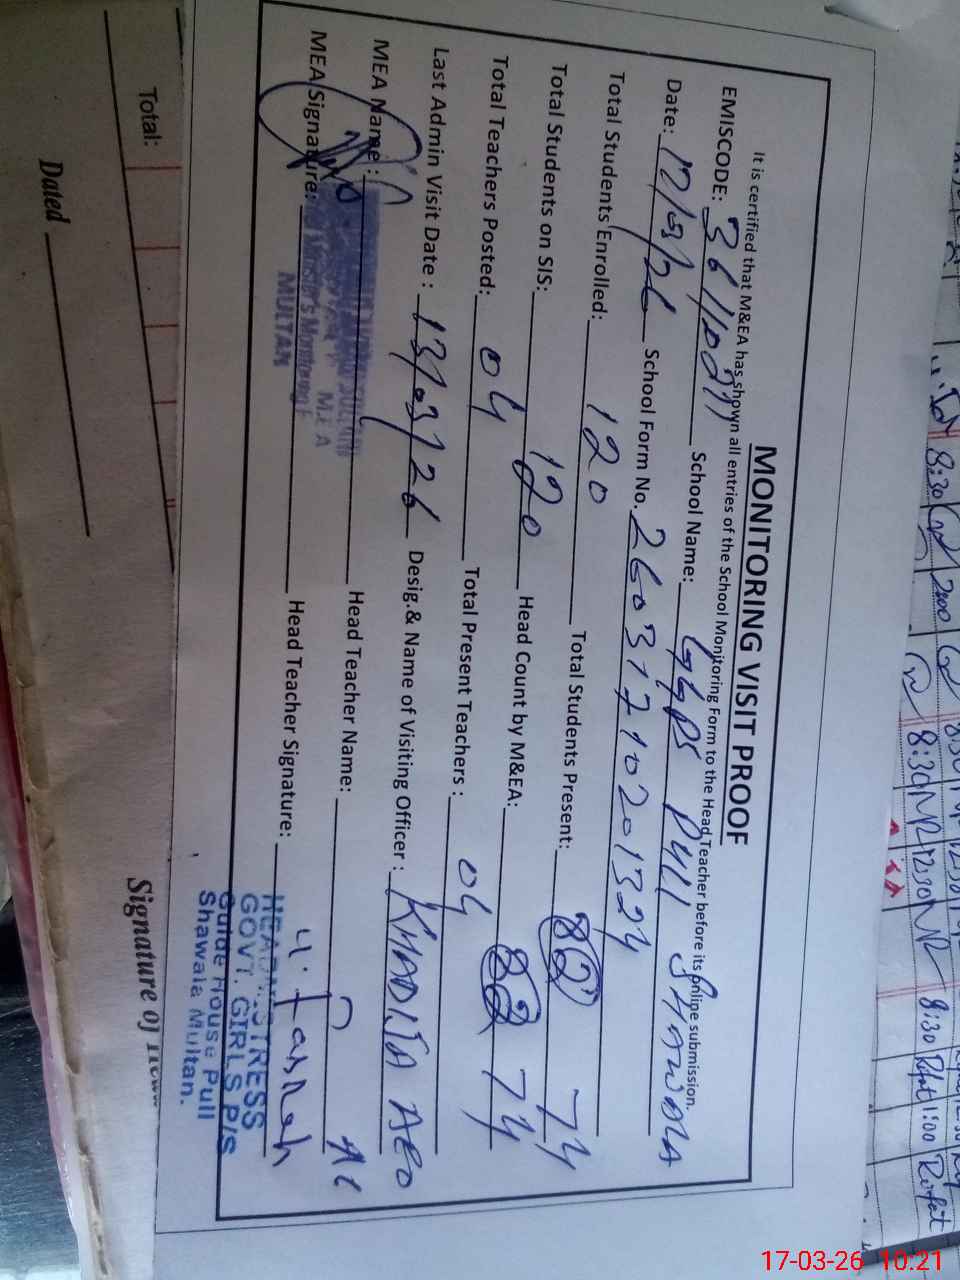 MONITORING VISIT PROOF
It is certified that M&EA has shown all entries of the School Monitoring Form to the Head Teacher before its online submission.
EMISCODE: 36110271 School Name: GGPS Pull SHAWALA
Date: 17/03/26 School Form No. 26031710201324
Total Students Enrolled: 120 Total Students Present: 82 74
Total Students on SIS: 120 Head Count by M&EA: 82 74
Total Teachers Posted: 04 Total Present Teachers: 04
Last Admin Visit Date: 13/03/26 Desig.& Name of Visiting Officer: KHADIJA AEO
MEA Name: Head Teacher Name:
MEA Signature: Head Teacher Signature:
M.E.A
Minister's Monitoring F
MULTAN
HEADMISTRESS
GOVT. GIRLS P/S
Guide House Pull
Shawala Multan.
Total:
Dated
Signature of
8:30 2:00
8:30 12:30 8:30 Rafat 1:00 Rafat
17-03-26 10:21